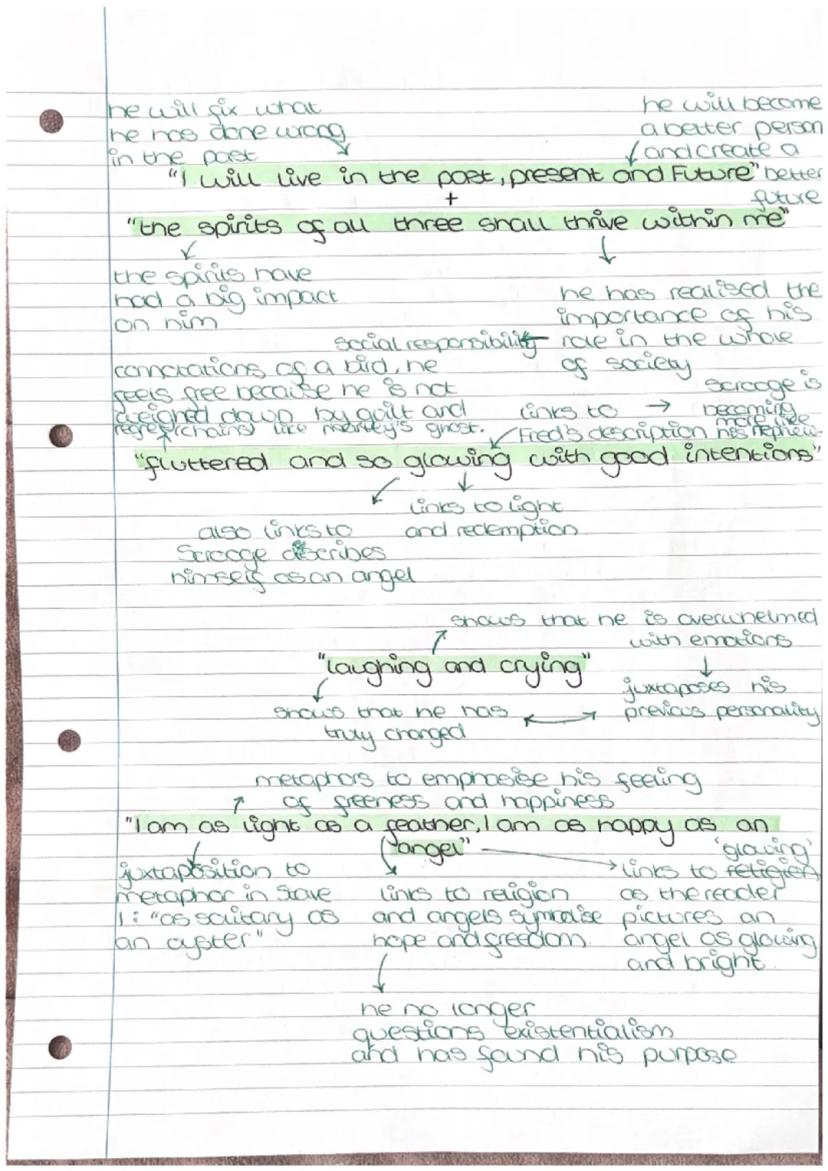 he will fix what
he has done wrong
in the past
he will become
a better person
and create a
better
future
"I will live in the past, present and Future"
+
"the spirits of all three shall thrive within me"
the spirits have
had a big impact
on him
he has realised the
importance of his
role in the whole
of society
social responsibility
connotations of a bird, he
feels free because he is not
weighed down by guilt and
regret (chains) like Marley's ghost.
links to →
Fred's description
Scrooge is
becoming
more like
his nephew
"fluttered and so glowing with good intentions"
links to light
and redemption
also links to
Scrooge describes
himself as an angel
shows that he is overwhelmed
with emotions
"laughing and crying"
juxtaposes his
previous personality
shows that he has
truly changed
metaphors to emphasise his feeling
of freeness and happiness
"I am as light as a feather, I am as happy as an
angel"
juxtaposition to
metaphor in Stave
1: "as solitary as
an oyster"
links to religion
and angels symbolise
hope and freedom.
'glowing'
links to religion
as the reader
pictures an
angel as glowing
and bright.
he no longer
questions existentialism
and has found his purpose